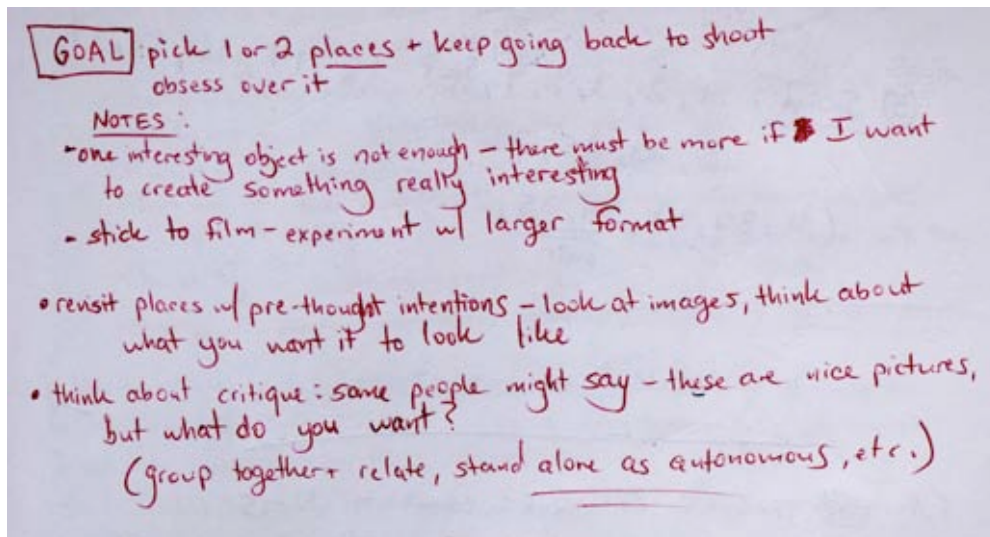 GOAL: pick 1 or 2 places + keep going back to shoot
obsess over it
NOTES:
- one interesting object is not enough - there must be more if I want
to create something really interesting
- stick to film - experiment w/ larger format
• revisit places w/ pre-thought intentions - look at images, think about
what you want it to look like
• think about critique: some people might say - these are nice pictures,
but what do you want?
(group together + relate, stand alone as autonomous, etc.)